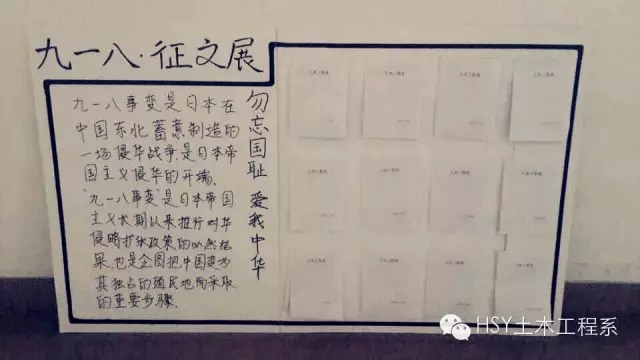 九一八·征文展
九一八事变是日本在
中国东北蓄意制造的
一场侵华战争,是日本帝
国主义侵华的开端.
"九一八事变"是日本帝国
主义长期以来推行对华
侵略扩张政策的必然结
果,也是企图把中国变为
其独占的殖民地而采取
的重要步骤.
勿忘国耻 爱我中华
HSY土木工程系